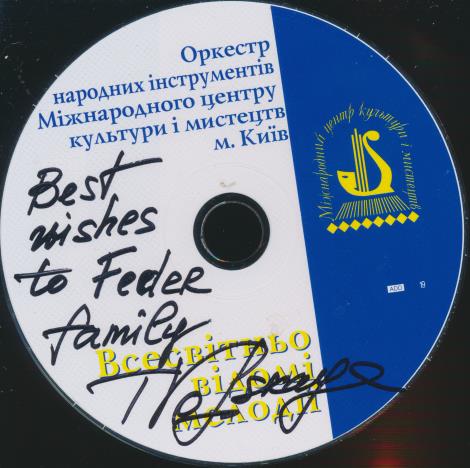 Оркестр
народних інструментів
Міжнародного центру
культури і мистецтв
м. Київ
Міжнародний центр культури і мистецтв
ADD
19
Best
wishes
to Feder
family
Всесвітньо
відомі
мелодії